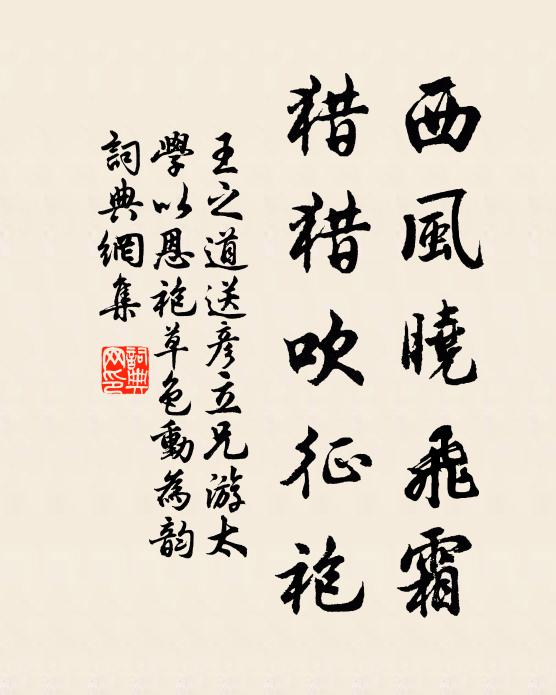 西風曉飛霜
猎猎吹征袍
王之道送彦立兄游太
學以恩袍草色動為韵
詞典網集
詞典网印